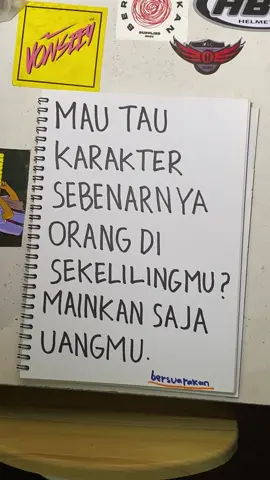 VONSEEY
BERSUARAKAN
HB
HELMET
MAU TAU
KARAKTER
SEBENARNYA
ORANG DI
SEKELILINGMU?
MAINKAN SAJA
UANGMU.
bersuarakan